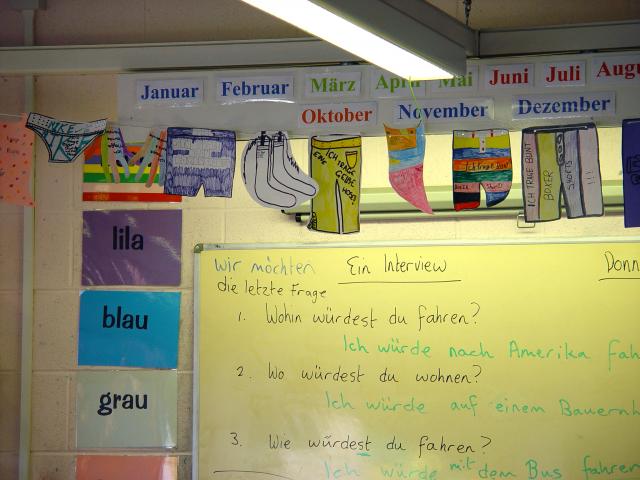 Januar Februar März April Mai Juni Juli Augu
Oktober November Dezember
NIKE
ICH TRAGE
EINE GELBE
HOSE
Ich trage bunt
ICH TRAGE BUNT
BOXER
SHORTS
!!!
lila
blau
grau
wir möchten Ein Interview Donn
die letzte Frage
1. Wohin würdest du fahren?
Ich würde nach Amerika fah
2. Wo würdest du wohnen?
Ich würde auf einem Bauernh
3. Wie würdest du fahren?
Ich würde mit dem Bus fahren